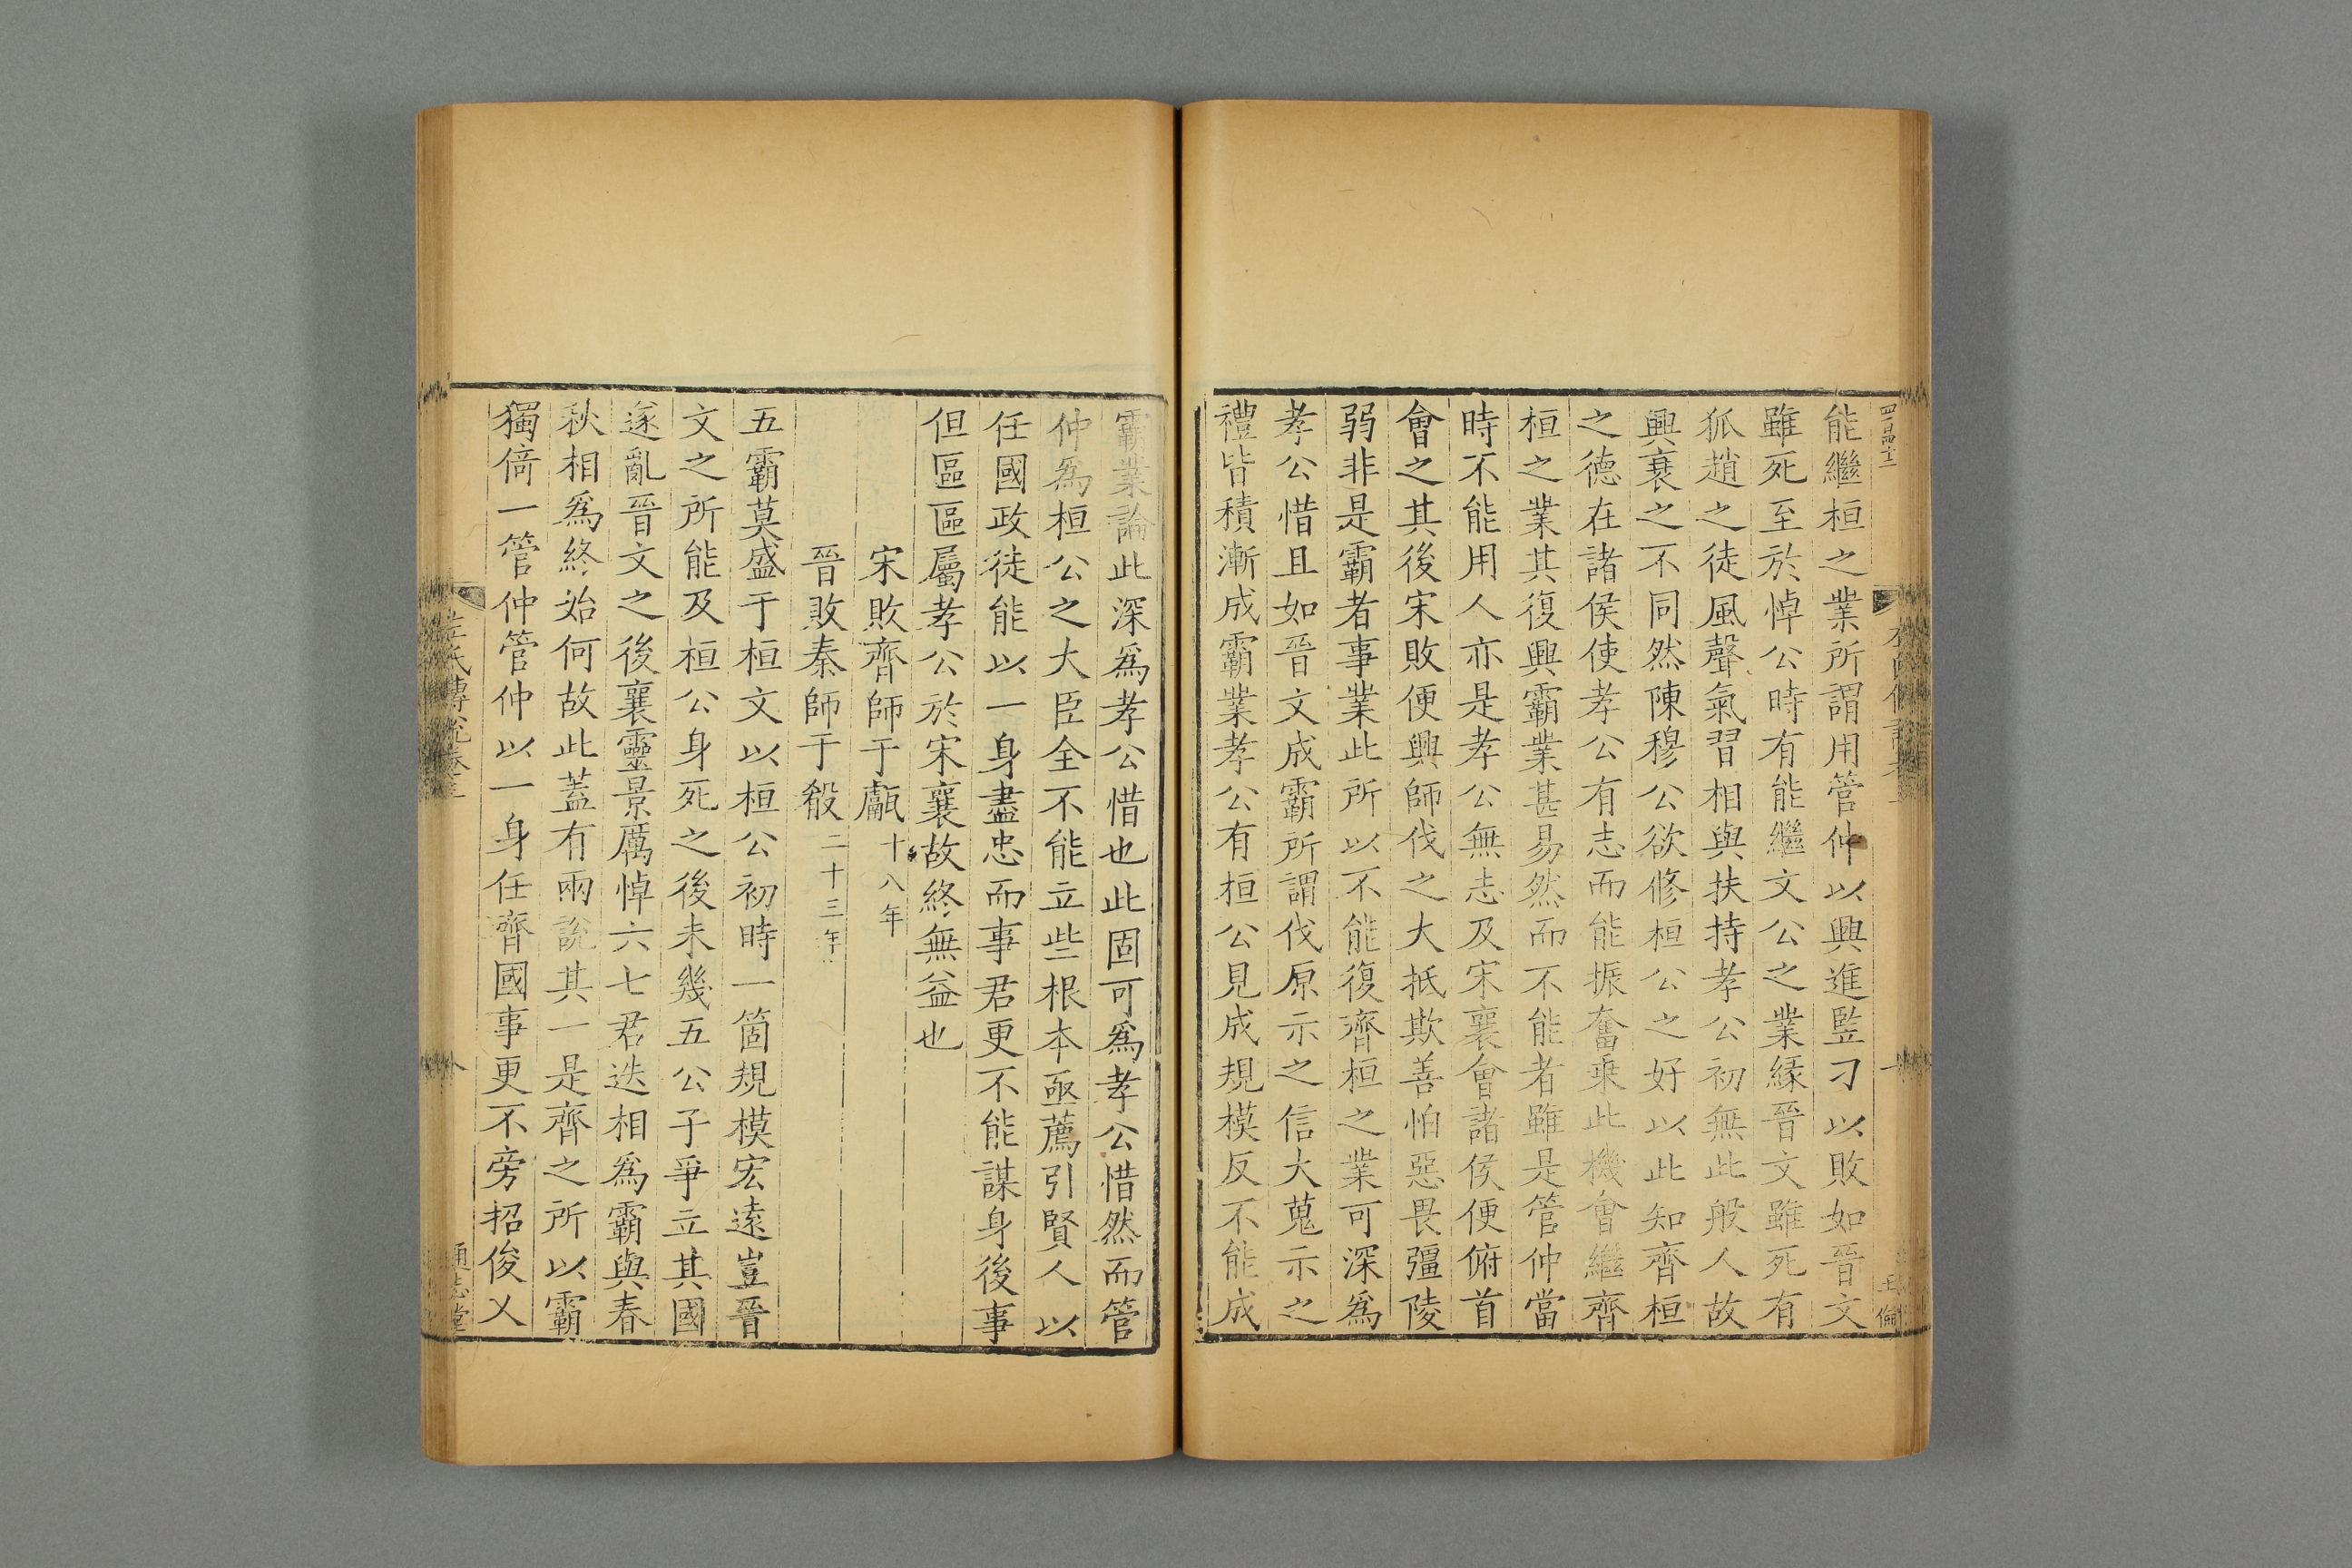 能繼桓之業所謂用管仲以興進監刁以敗如晉文
雖死至於悼公時有能繼文公之業緣晉文雖死有
狐趙之徒風聲氣習相與扶持孝公初無此般人故
興衰之不同然陳穆公欲修桓公之好以此知齊桓
之德在諸侯使孝公有志而能振奮乗此機會繼齊
桓之業其復興霸業甚易然而不能者雖是管仲當
時不能用人亦是孝公無志及宋襄會諸侯便俯首
會之其後宋敗便興師伐之大抵欺善怕惡畏彊陵
弱非是霸者事業此所以不能復齊桓之業可深爲
孝公惜且如晉文成霸所謂伐原示之信大蒐示之
禮皆積漸成霸業孝公有桓公見成規模反不能成
霸業論此深爲孝公惜也此固可爲孝公惜然而管
仲爲桓公之大臣全不能立些根本亟薦引賢人以
任國政徒能以一身盡忠而事君更不能謀身後事
但區區屬孝公於宋襄故終無益也
宋敗齊師于甗十八年
晉敗秦師于殽三十三年
五霸莫盛于桓文以桓公初時一箇規模宏遠豈晉
文之所能及桓公身死之後未幾五公子爭立其國
遂亂晉文之後襄靈景厲悼六七君迭相爲霸與春
秋相爲終始何故此蓋有兩說其一是齊之所以霸
獨倚一管仲管仲以一身任齊國事更不旁招俊乂
通志堂